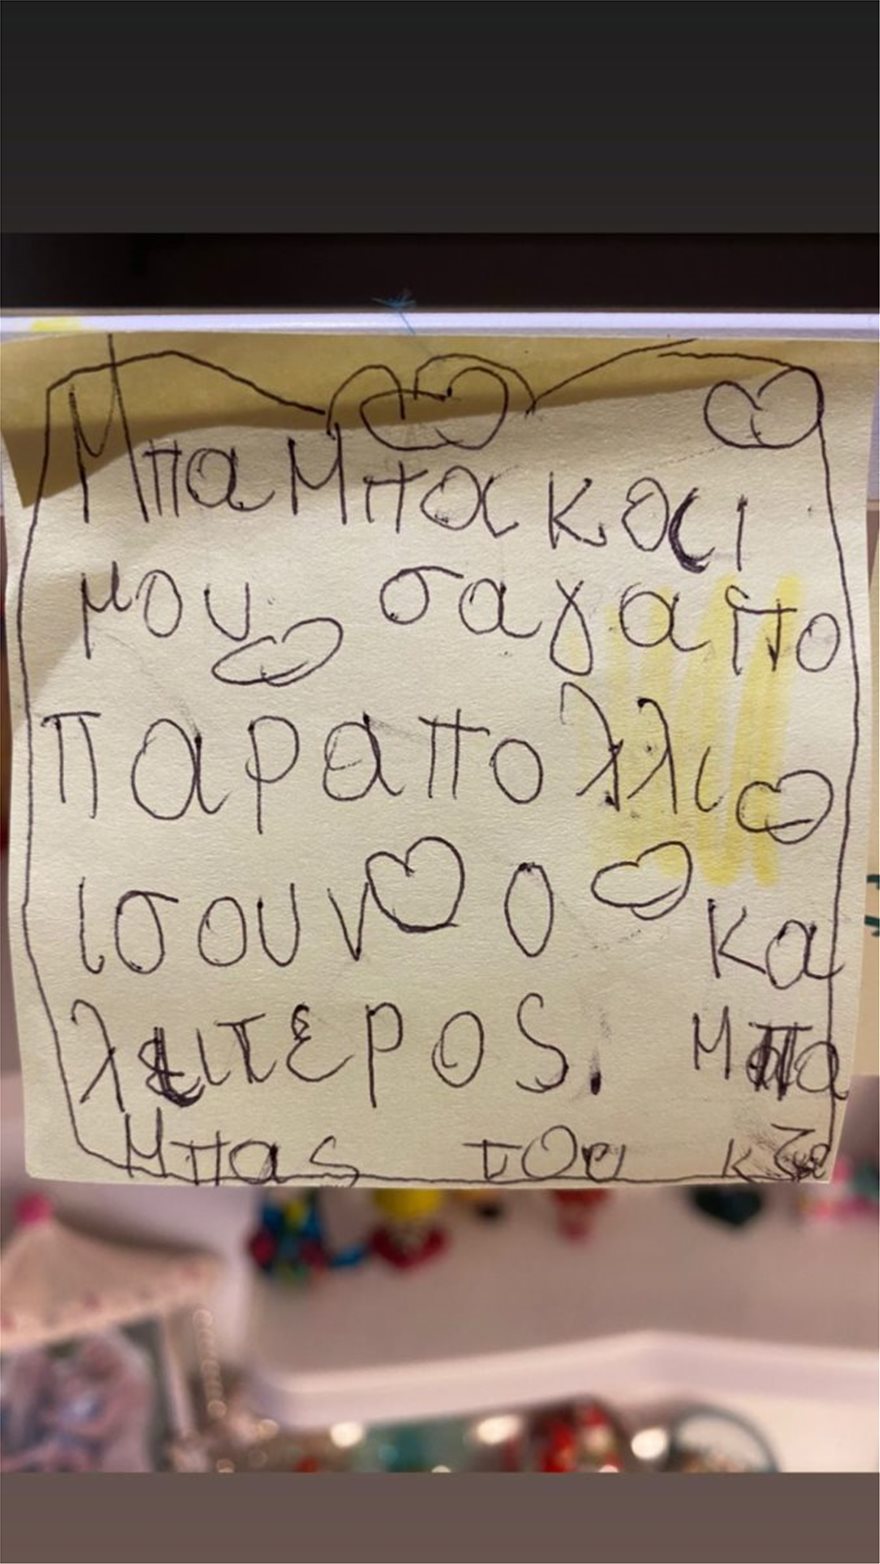 Μπαμπακαι
μου σαγαπο
παραπολλι
ισουν ο κα
λιτερος. Μπα
μπας του